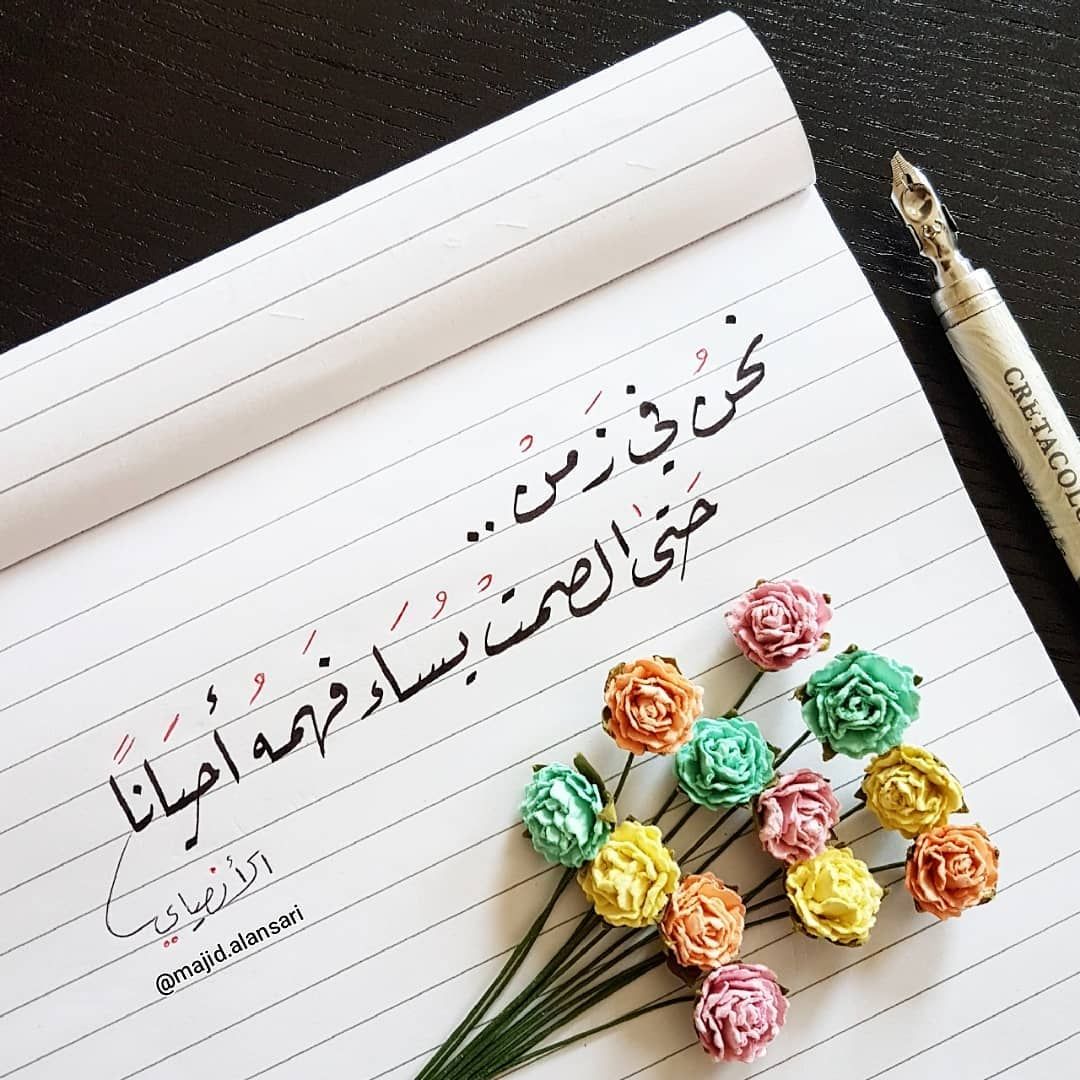 نحنُ في زَمنْ ..
حَتى الصمتْ يُسَاء فَهمهُ أحيَاناً
الأنصاري
@majid.alansari
CRETACOLO